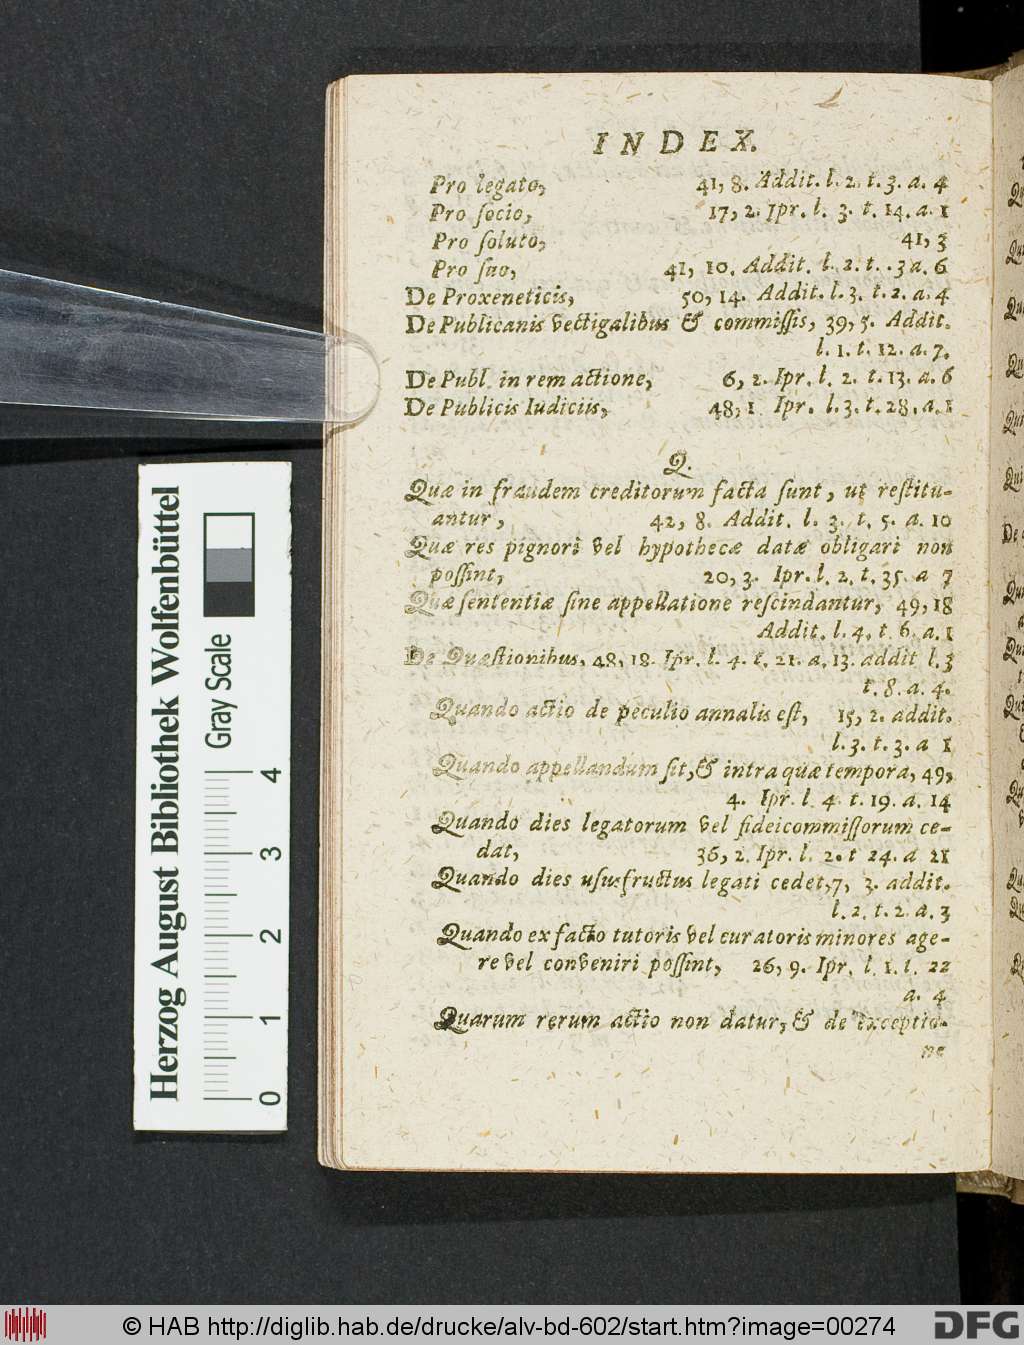 INDEX.
Pro legato, 41, 8. Addit. l. 2. t. 3. a. 4
Pro ſocio, 17, 2. Ipr. l. 3. t. 14. a. 1
Pro ſoluto, 41, 3
Pro ſuo, 41, 10. Addit. l. 2. t. . 3 a. 6
De Proxeneticis, 50, 14. Addit. l. 3. t. 2. a. 4
De Publicanis vectigalibus & commiſſis, 39, 5. Addit.
l. 1. t. 12. a. 7.
De Publ. in rem actione, 6, 2. Ipr. l. 2. t. 13. a. 6
De Publicis Iudiciis, 48, 1 Ipr. l. 3. t. 28. a. 1
Q.
Quæ in fraudem creditorum facta ſunt, ut reſtitu-
antur, 42, 8. Addit. l. 3. t. 5. a. 10
Quæ res pignori vel hypothecæ datæ obligari non
poſſint, 20, 3. Ipr. l. 2. t. 35. a 7
Quæ ſententiæ ſine appellatione reſcindantur, 49, 18
Addit. l. 4. t. 6. a. 1
De Quæſtionibus, 48, 18. Ipr. l. 4. t. 21. a. 13. addit l. 3
t. 8. a. 4.
Quando actio de peculio annalis eſt, 15, 2. addit.
l. 3. t. 3. a 1
Quando appellandum ſit, & intra quæ tempora, 49,
4. Ipr. l. 4 t. 19. a. 14
Quando dies legatorum vel fideicommiſſorum ce-
dat, 36, 2. Ipr. l. 2. t 24. a 21
Quando dies uſusfructus legati cedet, 7, 3. addit.
l. 2. t. 2. a. 3
Quando ex facto tutoris vel curatoris minores age-
re vel conveniri poſſint, 26, 9. Ipr. l. 1. t. 22
a. 4
Quarum rerum actio non datur, & de exceptio-
ne
Herzog August Bibliothek Wolfenbüttel
Gray Scale
0 1 2 3 4
© HAB http://diglib.hab.de/drucke/alv-bd-602/start.htm?image=00274
DFG